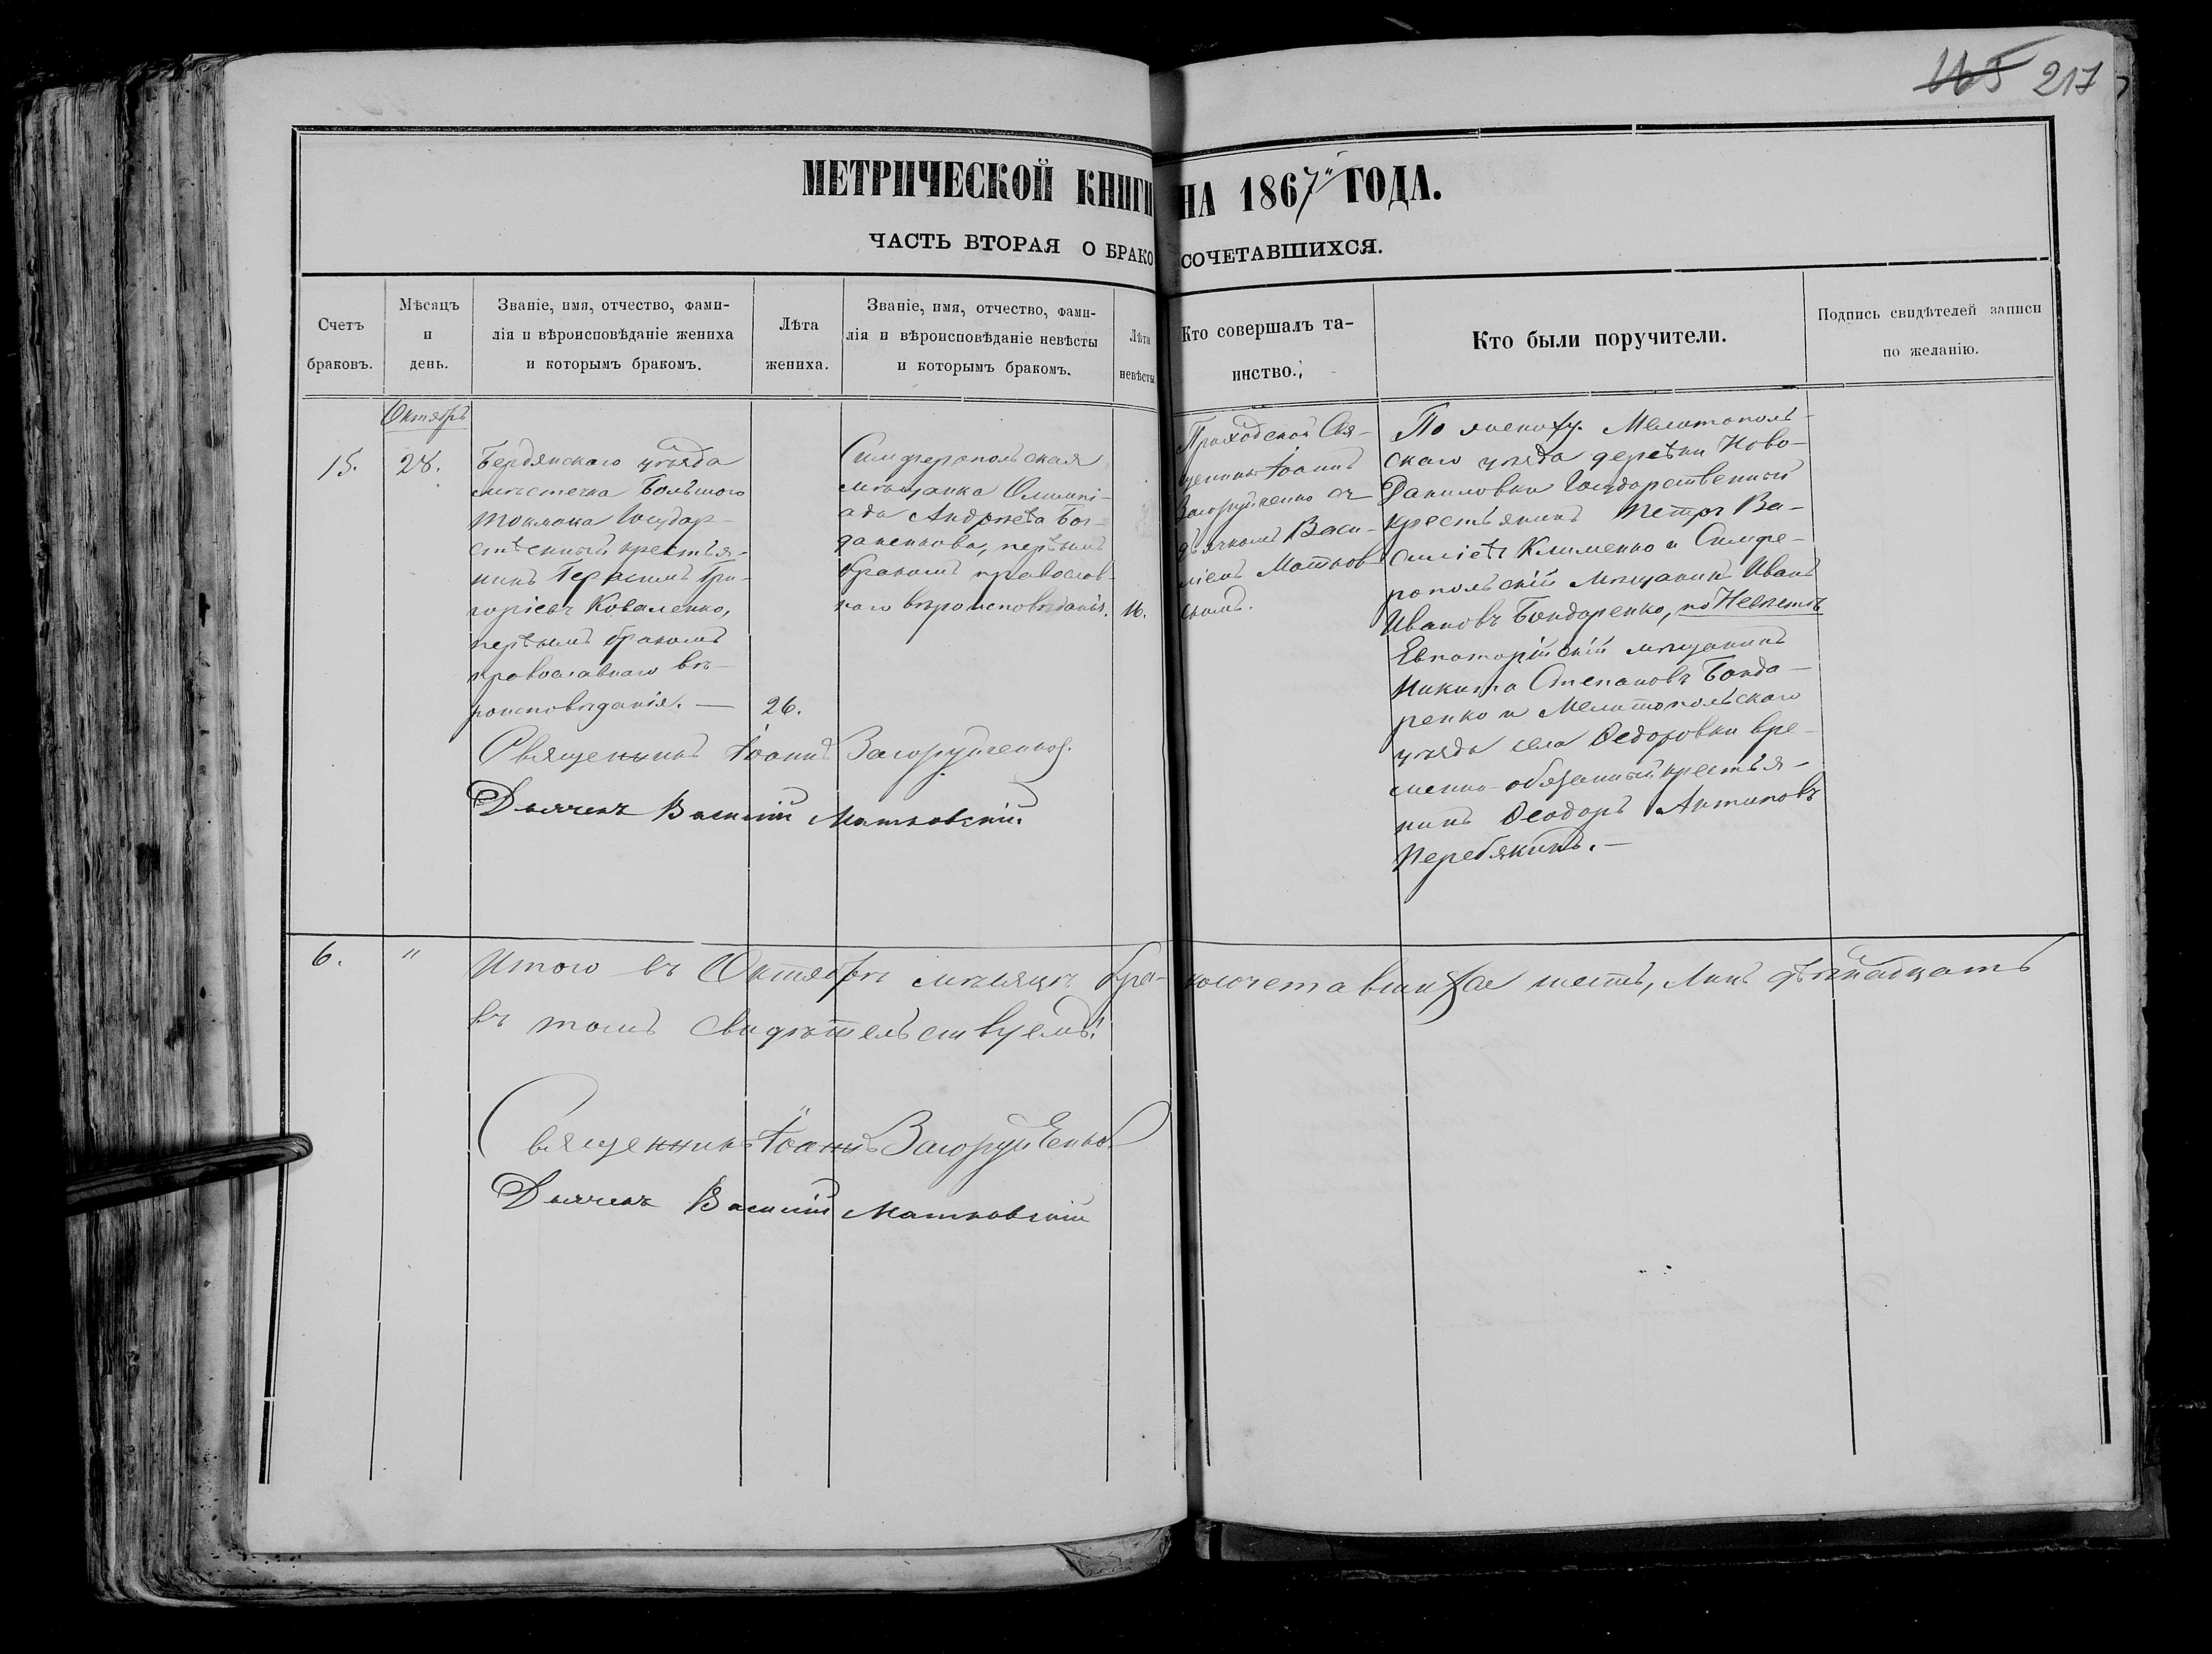 165 217
МЕТРИЧЕСКОЙ КНИГИ НА 1867 ГОДА.
ЧАСТЬ ВТОРАЯ О БРАКОСОЧЕТАВШИХСЯ.
Счетъ
браковъ.
Мѣсяцъ
и
день.
Званіе, имя, отчество, фами-
лія и вѣроисповѣданіе жениха
и которымъ бракомъ.
Лѣта
жениха.
Званіе, имя, отчество, фами-
лія и вѣроисповѣданіе невѣсты
и которымъ бракомъ.
Лѣта
невѣсты.
Кто совершалъ та-
инство.
Кто были поручители.
Подпись свидѣтелей записи
по желанію.
Октябрь
15.
28.
Бердянскаго уѣзда
мѣстечка Большого
Токмака Государ-
ственный крестья-
нинъ Герасимъ Гри-
горіевъ Коваленко,
первымъ бракомъ
православнаго вѣ-
роисповѣданія. —
26.
Симферопольская
мѣщанка Олимпі-
ада Андреева Бог-
даненкова, первымъ
бракомъ православ-
наго вѣроисповѣданія.
16.
Приходской Свя-
щенникъ Іоаннъ
Загоруйченко съ
дьячкомъ Васи-
ліемъ Матков-
скимъ.
По жениху: Мелитополь-
скаго уѣзда деревни Ново-
Даниловки Государственный
крестьянинъ Петръ Ва-
силіевъ Клименко и Симфе-
ропольскій мѣщанинъ Иванъ
Ивановъ Бондаренко, по Невѣстѣ
Евпаторійскій мѣщанинъ
Никита Степановъ Бонда-
ренко и Мелитопольскаго
уѣзда села Ѳедоровки вре-
менно-обязанный крестья-
нинъ Ѳеодоръ Антиповъ
Перебякинъ. —
Священникъ Іоаннъ Загоруйченко.
Дьячекъ Василій Матковскій.
6.
"
Итого въ Октябрѣ мѣсяцѣ бра-косочетавшихся шесть, лицъ двѣнадцать
въ томъ свидѣтельствуемъ:
Священникъ Іоаннъ Загоруйченко
Дьячекъ Василій Матковскій